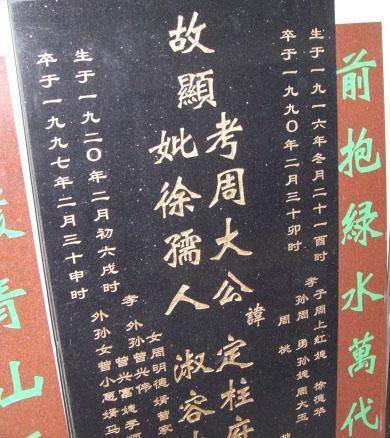 前抱绿水萬代
生于一九一六年冬月二十一酉时
卒于一九九〇年二月三十卯时
孝子周上紅媳徐德华
孙周勇孙媳周大玉
周桃
故顯
考周大公諱定柱府
妣徐孺人淑容
女周明德婿曾家
孝外孙曾兴伟
外孙曾兴富媳李顺
外孙女曾小惠婿马
生于一九二〇年二月初六戌时
卒于一九九七年二月三十申时
青山